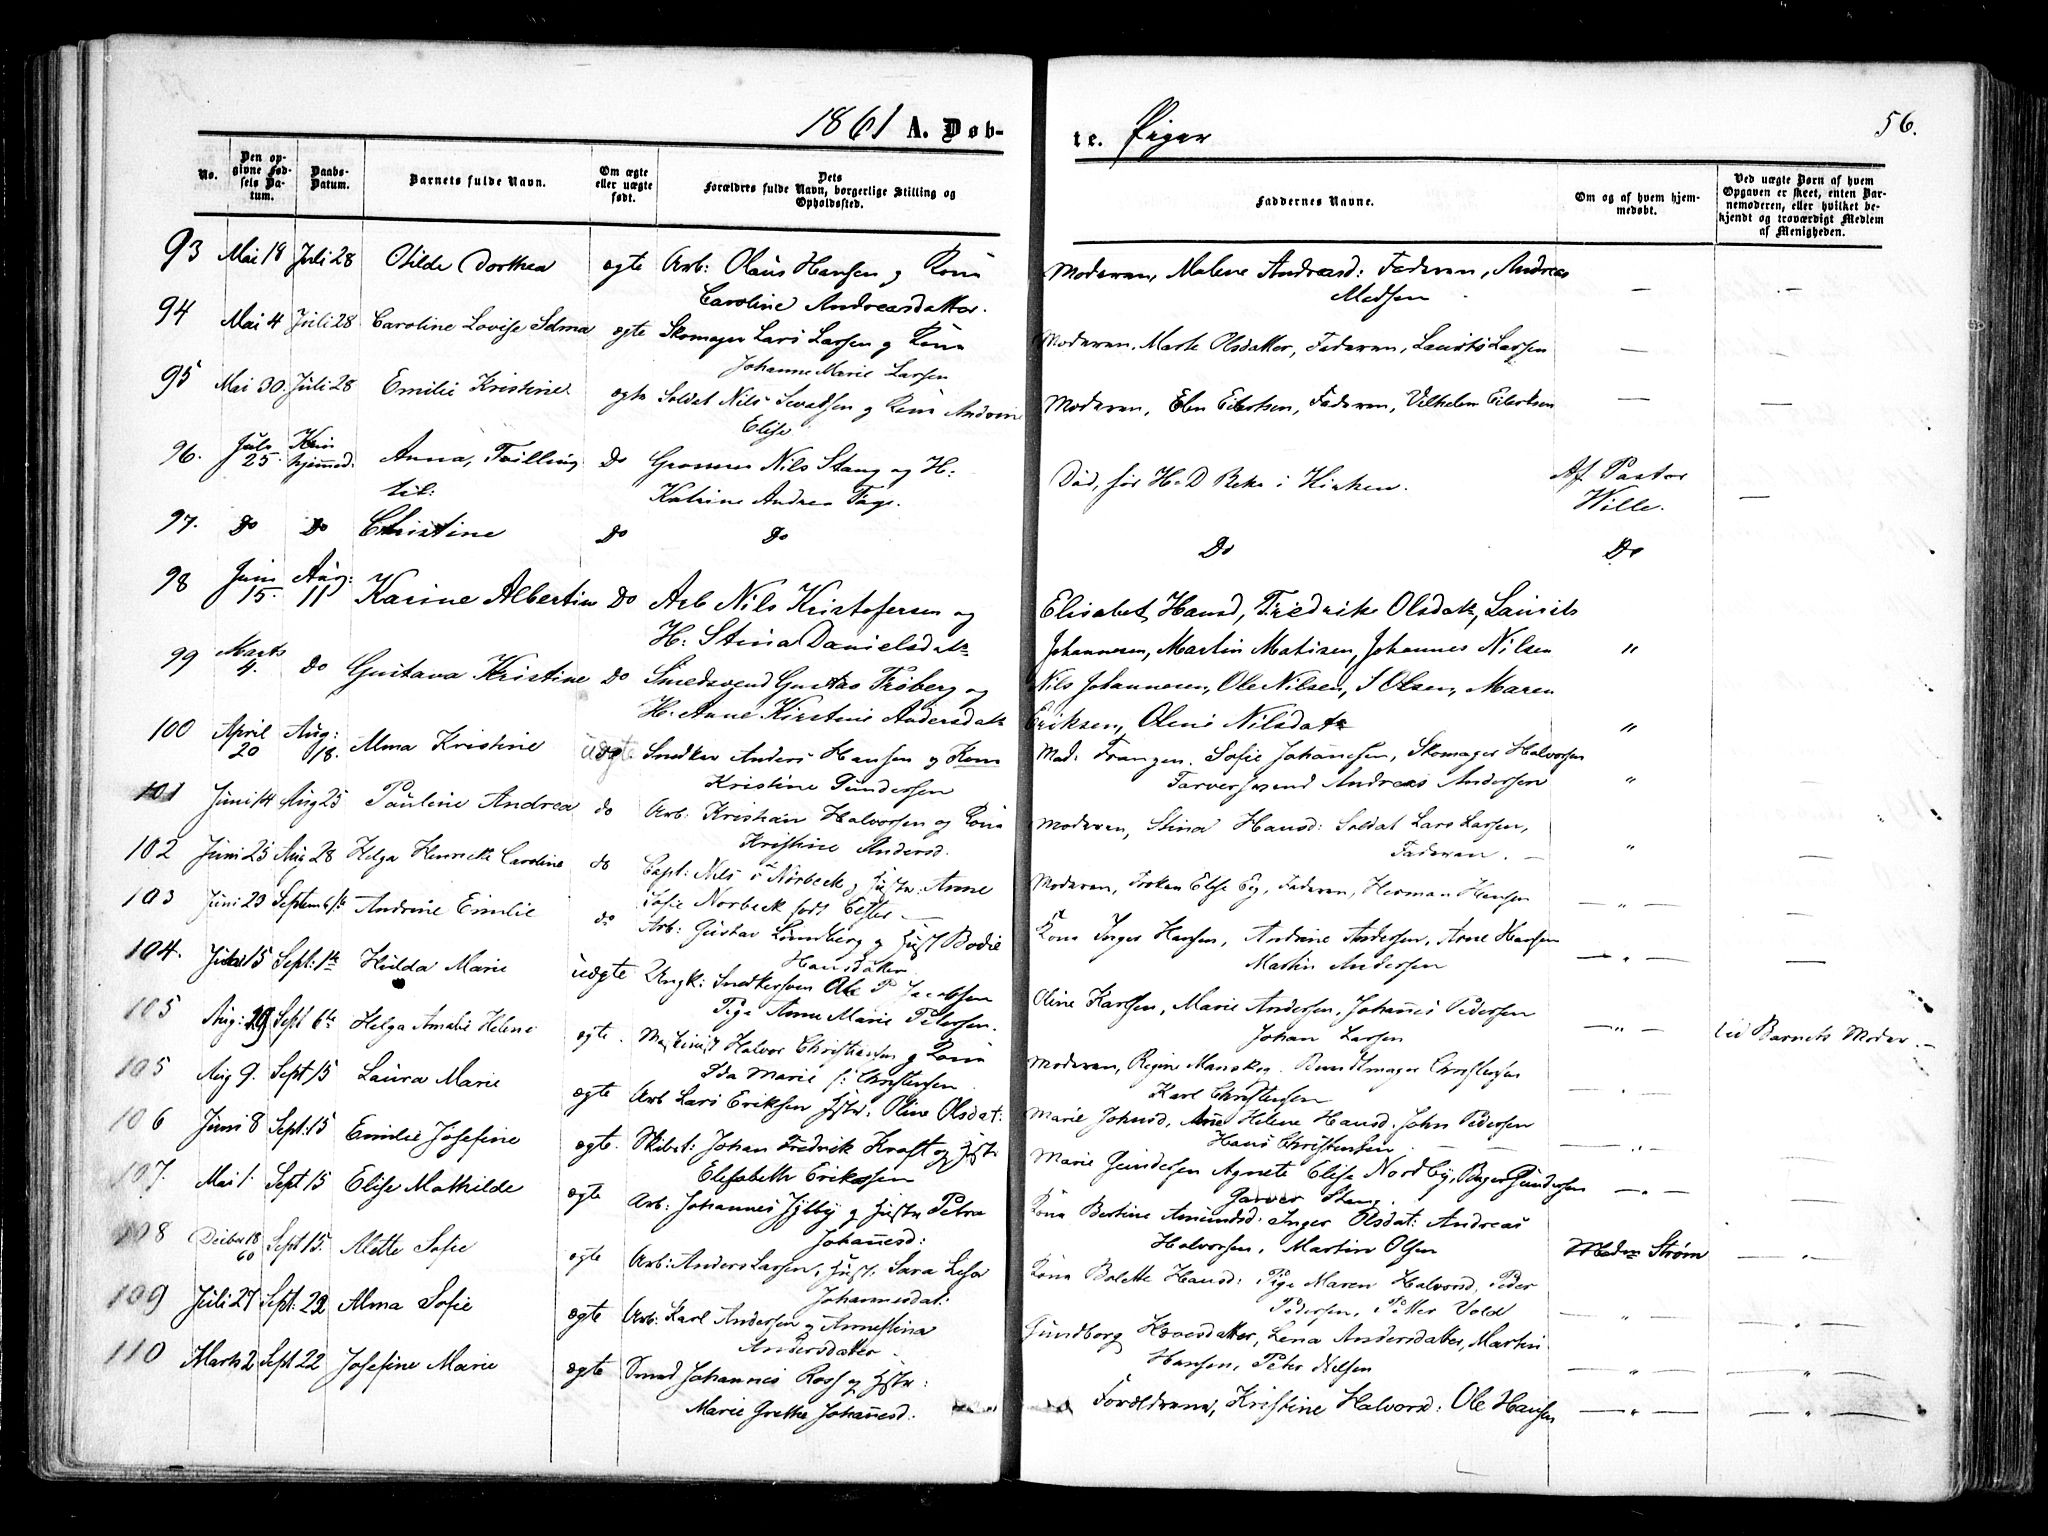 1861 A. Døb-
te. Piger
56.
No.
Den op-
givne Fød-
sels Da-
tum.
Daabs-
Datum.
Barnets fulde Navn.
Om ægte
eller uægte
født.
Dets
Forældres fulde Navn, borgerlige Stilling og
Opholdssted.
Faddernes Navne.
Om og af hvem hjem-
medøbt.
Ved uægte Børn af hvem
Opgaven er skeet, enten Bar-
nemoderen, eller hvilket be-
kjendt og troværdigt Medlem
af Menigheden.
93 Mai 18 Juli 28 Otilde Dorthea ægte Arb: Olaus Hansen og Kona
Caroline Andreasdatter.
Moderen, Malene Andreasd: Faderen, Andreas
Madsen
94 Mai 4 Juli 28 Caroline Lovise Selma ægte Skomager Lars Larsen og Kona
Johanne Marie Larsen
Moderen, Marte Olsdatter, Faderen, Laurits Larsen
95 Mai 30 Juli 28 Emilie Kristine ægte Soldat Nils og Kona Andrine
Elise
Moderen, Elen Eilertsen, Faderen, Vilhelm Eilertsen
96. Juli 25 hjemmed: Anna, Tvilling til: Do Nils Stang og H:
Katrine Andrea
Død, før i Kirken.
Af Pastor
Wille.
97. Do Do Christine Do Do
Do
Do
98 Juni 15. Aug: 11 Karine Albertine Do Arb Nils Kristofersen og
H: Stina Danielsdatr
Elisabet Hansd, Fredrik Olsdatr, Laurits
Johannesen, Martin Matisen, Johannes Nilsen "
99 Marts 4. Do Gustava Kristine Do Smedsvend Gustav Frøberg og
H: Anne Kirstine Andersdatr
Nils Johannesen, Ole Nilsen, Olsen, Maren
Eriksen, Oline Nilsdatr "
100 April 20 Aug: 18. Alma Kristine uægte Snedker Anders Hansen og Kona
Kristine Gundersen
Mad: Frangen. Sofie Johanesen, Skomager Halvorsen
Farversvend Andreas Andersen "
101 Juni 14 Aug 25 Pauline Andrea do Arb: Kristian Halvorsen og Kona
Kristine Andersd.
Moderen, Stina Hansd: Soldat Lars Larsen,
Faderen. "
102 Juni 25 Aug 28 Helga Henricke Caroline do Capt: Nils Nørbeck og Hustr: Anne
Sofie Norbeck født
Moderen, Frøken Elise Faderen, Herman Hansen "
103 Juni 20 Septem Andrine Emilie do Arb: Gustav Lundberg og Hust Bodil
Hansdatter
Kona Inger Hansen, Andrine Andersen, Arne Hansen
Martin Andersen "
104. Juli 15 Sept: 1te Hilda Marie uægte Ungk: Snedkersven Ole P Jacobsen
Pige Anne Marie Petersen.
Oline Karlsen, Marie Andersen, Johanes Pedersen
Johan Larsen " ved Barnets Moder.
105 Aug: 29 Sept 6te Helga Amalie Helene ægte. Maskinist Halvor Christiansen og Kona
Ida Marie f: Christensen
Moderen, Regine Bundtmager Christensen
Karl Christensen
105 Aug 9. Sept 15 Laura Marie ægte Arb Lars Eriksen Hstr: Oline Olsdat:
Marie Johnsd, Ane Helene Hansd. John Pedersen
Hans Christensen "
106 Juni 8 Sept: 15 Emilie Josefine ægte. Skibst: Johan Fredrik Kraft og Hstr
Elisabeth Eriksen
Marie Gundersen Agnete Elise Nordby, Gundersen
Garver Stang. "
107. Mai 1. Sept 15 Elise Mathilde ægte Arb: Johannes og Hustr Petra
Johanesd:
Kona Bertine Amundsd: Inger Olsdat: Andreas
Halvorsen, Martin Olsen Strøm "
108 Decber 18 60 Sept 15. Alette Sofie ægte Arb: Anders Larsen, Hust. Sara Lisa
Johannesdat:
Kona Bolette Hansd: Pige Maren Halvorsd. Peder
Pedersen, Petter Vold "
109 Juli 27 Sept: 22 Alma Sofie ægte Arb: Karl Andersen og Annestina
Andersdatter
Gundborg Lena Andersdatter, Martin
Hansen, Peter Nilsen "
110 Marts 2 Sept 22 Josefine Marie ægte Smed Johannes Ross og Hstr:
Marie Grethe Johanesd:
Forældrene, Kristine Halvorsd: Ole Hansen "